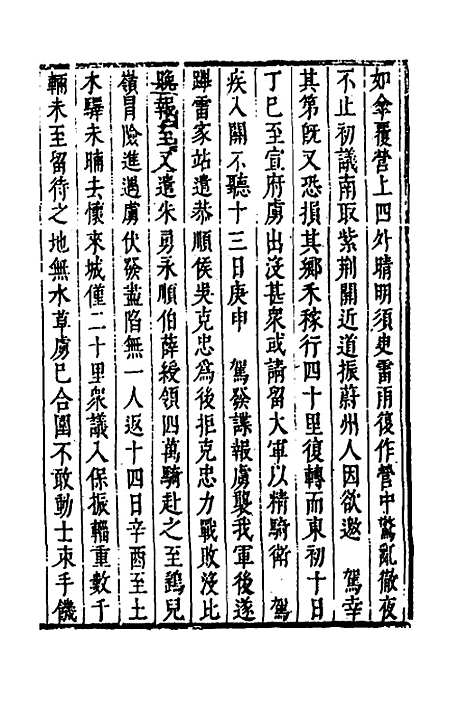 如傘覆營上四外晴明須臾雷雨復作營中驚亂徹夜
不止初議南取紫荆關近道振蔚州人因欲邀　駕幸
其第旣又恐損其鄉禾稼行四十里復轉而東初十日
丁巳至宣府虜出沒甚衆或請留大軍以精騎衛　駕
疾入關不聽十三日庚申　駕發諜報虜襲我軍後遂
蹕雷家站遣恭順侯吳克忠爲後拒克忠力戰敗沒比
晚報至又遣朱勇永順伯薛綬領四萬騎赴之至鷂兒
嶺冒險進遇虜伏發盡陷無一人返十四日辛酉至土
木驛未晡去懷來城僅二十里衆議入保振輜重數千
輛未至留待之地無水草虜已合圍不敢動士束手饑